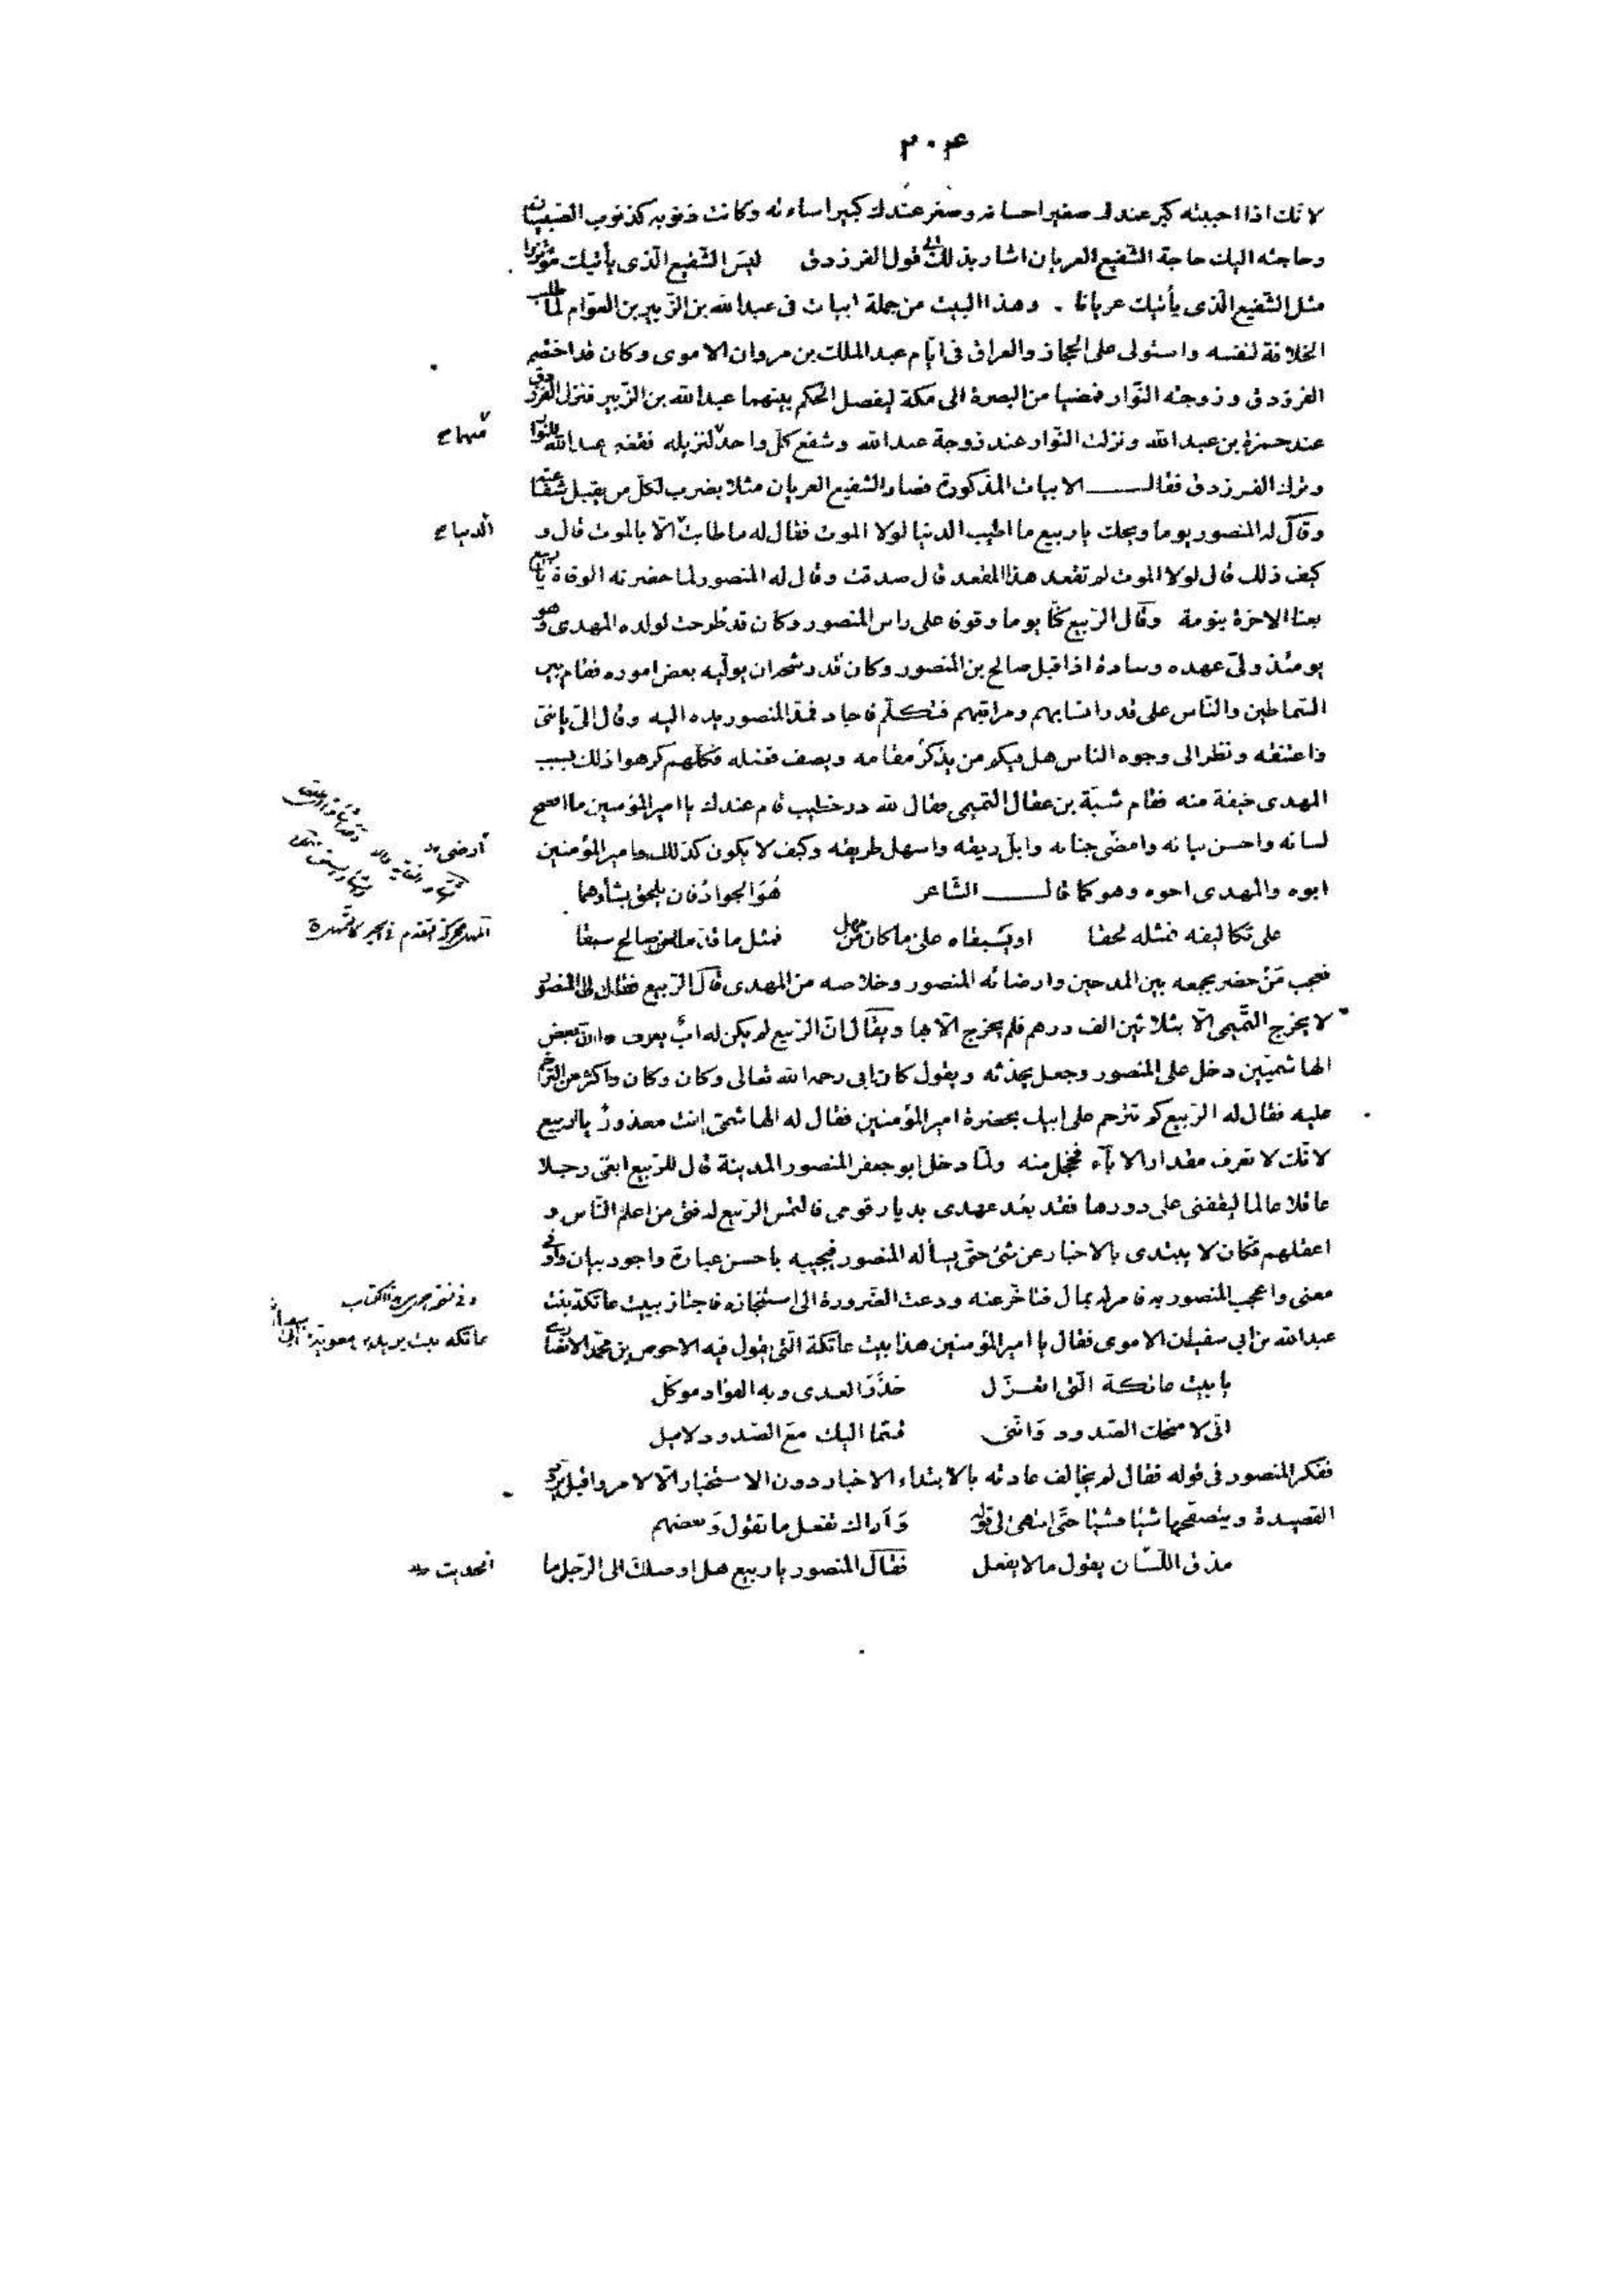 ٢٠٤
لانك اذا احببته كبر عندك صغير احسانه وصغر عندك كبير اساءته وكانت ذنوبه كذنوب الصبيان
وحاجته اليك حاجة الشفيع العريان اشار بذلك الى قول الفرزدق ليس الشفيع الذى يأتيك مؤتزرا
مثل الشفيع الذى يأتيك عريانا . وهذا البيت من جملة ابيات فى عبد الله بن الزبير بن العوام لما طلب
الخلافة لنفسه واستولى على الحجاز والعراق فى ايّام عبد الملك بن مروان الاموى وكان قد اختصم
الفرزدق وزوجته النوار فمضيا من البصرة الى مكة ليفصل الحكم بينهما عبد الله بن الزبير فنزل الفرزدق
عند حمزة بن عبد الله ونزلت النوار عند زوجة عبد الله وشفع كلّ واحد لنزيله فقضى عبد الله للنوار
منهما ح
وترك الفرزدق فقال الابيات المذكورة فصار الشفيع العريان مثلا يضرب لكل من يقبل شفاعته
وقال له المنصور يوما ويحك يا ربيع ما اطيب الدنيا لولا الموت فقال له ما طابت الّا بالموت قال و
الدنيا ح
كيف ذلك قال لولا الموت لم تقعد هذا المقعد قال صدقت وقال له المنصور لما حضرته الوفاة يا ربيع
بعنا الاخرة بنومة وقال الربيع كنّا يوما وقوفا على راس المنصور وكان قد طرحت لولده المهدى وهو
يومئذ ولىّ عهده وسادة اذ اقبل صالح بن المنصور وكان قد رشحه ان يوليه بعض اموره فقام بين
السماطين والناس على قدر انسابهم ومراتبهم فتكلّم فاجاد فمدّ المنصور يده اليه وقال الىّ يا بنىّ
واعتنقه ونظر الى وجوه الناس هل فيكم من يذكر مقامه ويصف فضله فكلّهم كرهوا ذلك بسبب
المهدى خيفة منه فقام شبّة بن عقال التميمى فقال لله در خطيب قام عندك يا امير المؤمنين ما افصح
لسانه واحسن بيانه وامضى جنانه وابلّ ريقه واسهل طريقه وكيف لا يكون كذلك وامير المؤمنين
ابوه والمهدى اخوه وهو كما قال الشاعر هُوَ الجواد فان يلحق بشأوهما
على تكاليفه فمثله لحقا او يسبقاه على ما كان من مهل فمثل ما قدّما من صالح سبقا
فعجب مَنْ حضر بجمعه بين المدحين وارضائه المنصور وخلاصه من المهدى قال الربيع فقال لى المنصور
لا يخرج التميمى الّا بثلاثين الف درهم فلم يخرج الّا بها ويقال انّ الربيع لم يكن له ابٌ يعرف وان بعض
الهاشميّين دخل على المنصور وجعل يحدثه ويقول كان ابى رحمه الله تعالى وكان وكان واكثر من الترحم
عليه فقال له الربيع كم تترحم على ابيك بحضرة امير المؤمنين فقال له الهاشمى انت معذورٌ يا ربيع
لانك لا تعرف مقدار الاباء فخجل منه ولمّا دخل ابو جعفر المنصور المدينة قال للربيع ابغنى رجلا
عاقلا عالما ليقفنى على دورها فقد بعُد عهدى بديار قومى فالتمس الربيع له فتى من اعلم الناس و
اعقلهم فكان لا يبتدى بالاخبار عن شئ حتّى يسأله المنصور فيجيبه باحسن عبارة واجود بيان واوفى
معنى واعجب المنصور به فامر له بمال فتاخّر عنه ودعت الضرورة الى استنجازه فاجتاز ببيت عاتكة بنت
عبد الله بن ابى سفيان الاموى فقال يا امير المؤمنين هذا بيت عاتكة الّتى يقول فيه الاحوص بن محمّد الانصارى
عاتكه بنت يزيد بن معوية بن ابى
يا بيت عاتكة الّتى اتغزّل حذَرَ العدى وبه الفؤاد موكّل
انّى لامنحك الصدود وَانّنى قسما اليك مع الصدود لاميل
ففكر المنصور فى قوله فقال لم يخالف عادته بالابتداء الاخبار دون الاستخبار الّا لامر واقبل يردد
القصيدة ويتصفحها شيئا فشيئا حتّى انتهى الى قوله وَاراك تفعل ما تقول وَبعضهم
مذق اللسان يقول ما لا يفعل فقال المنصور يا ربيع هل اوصلت الى الرجل ما